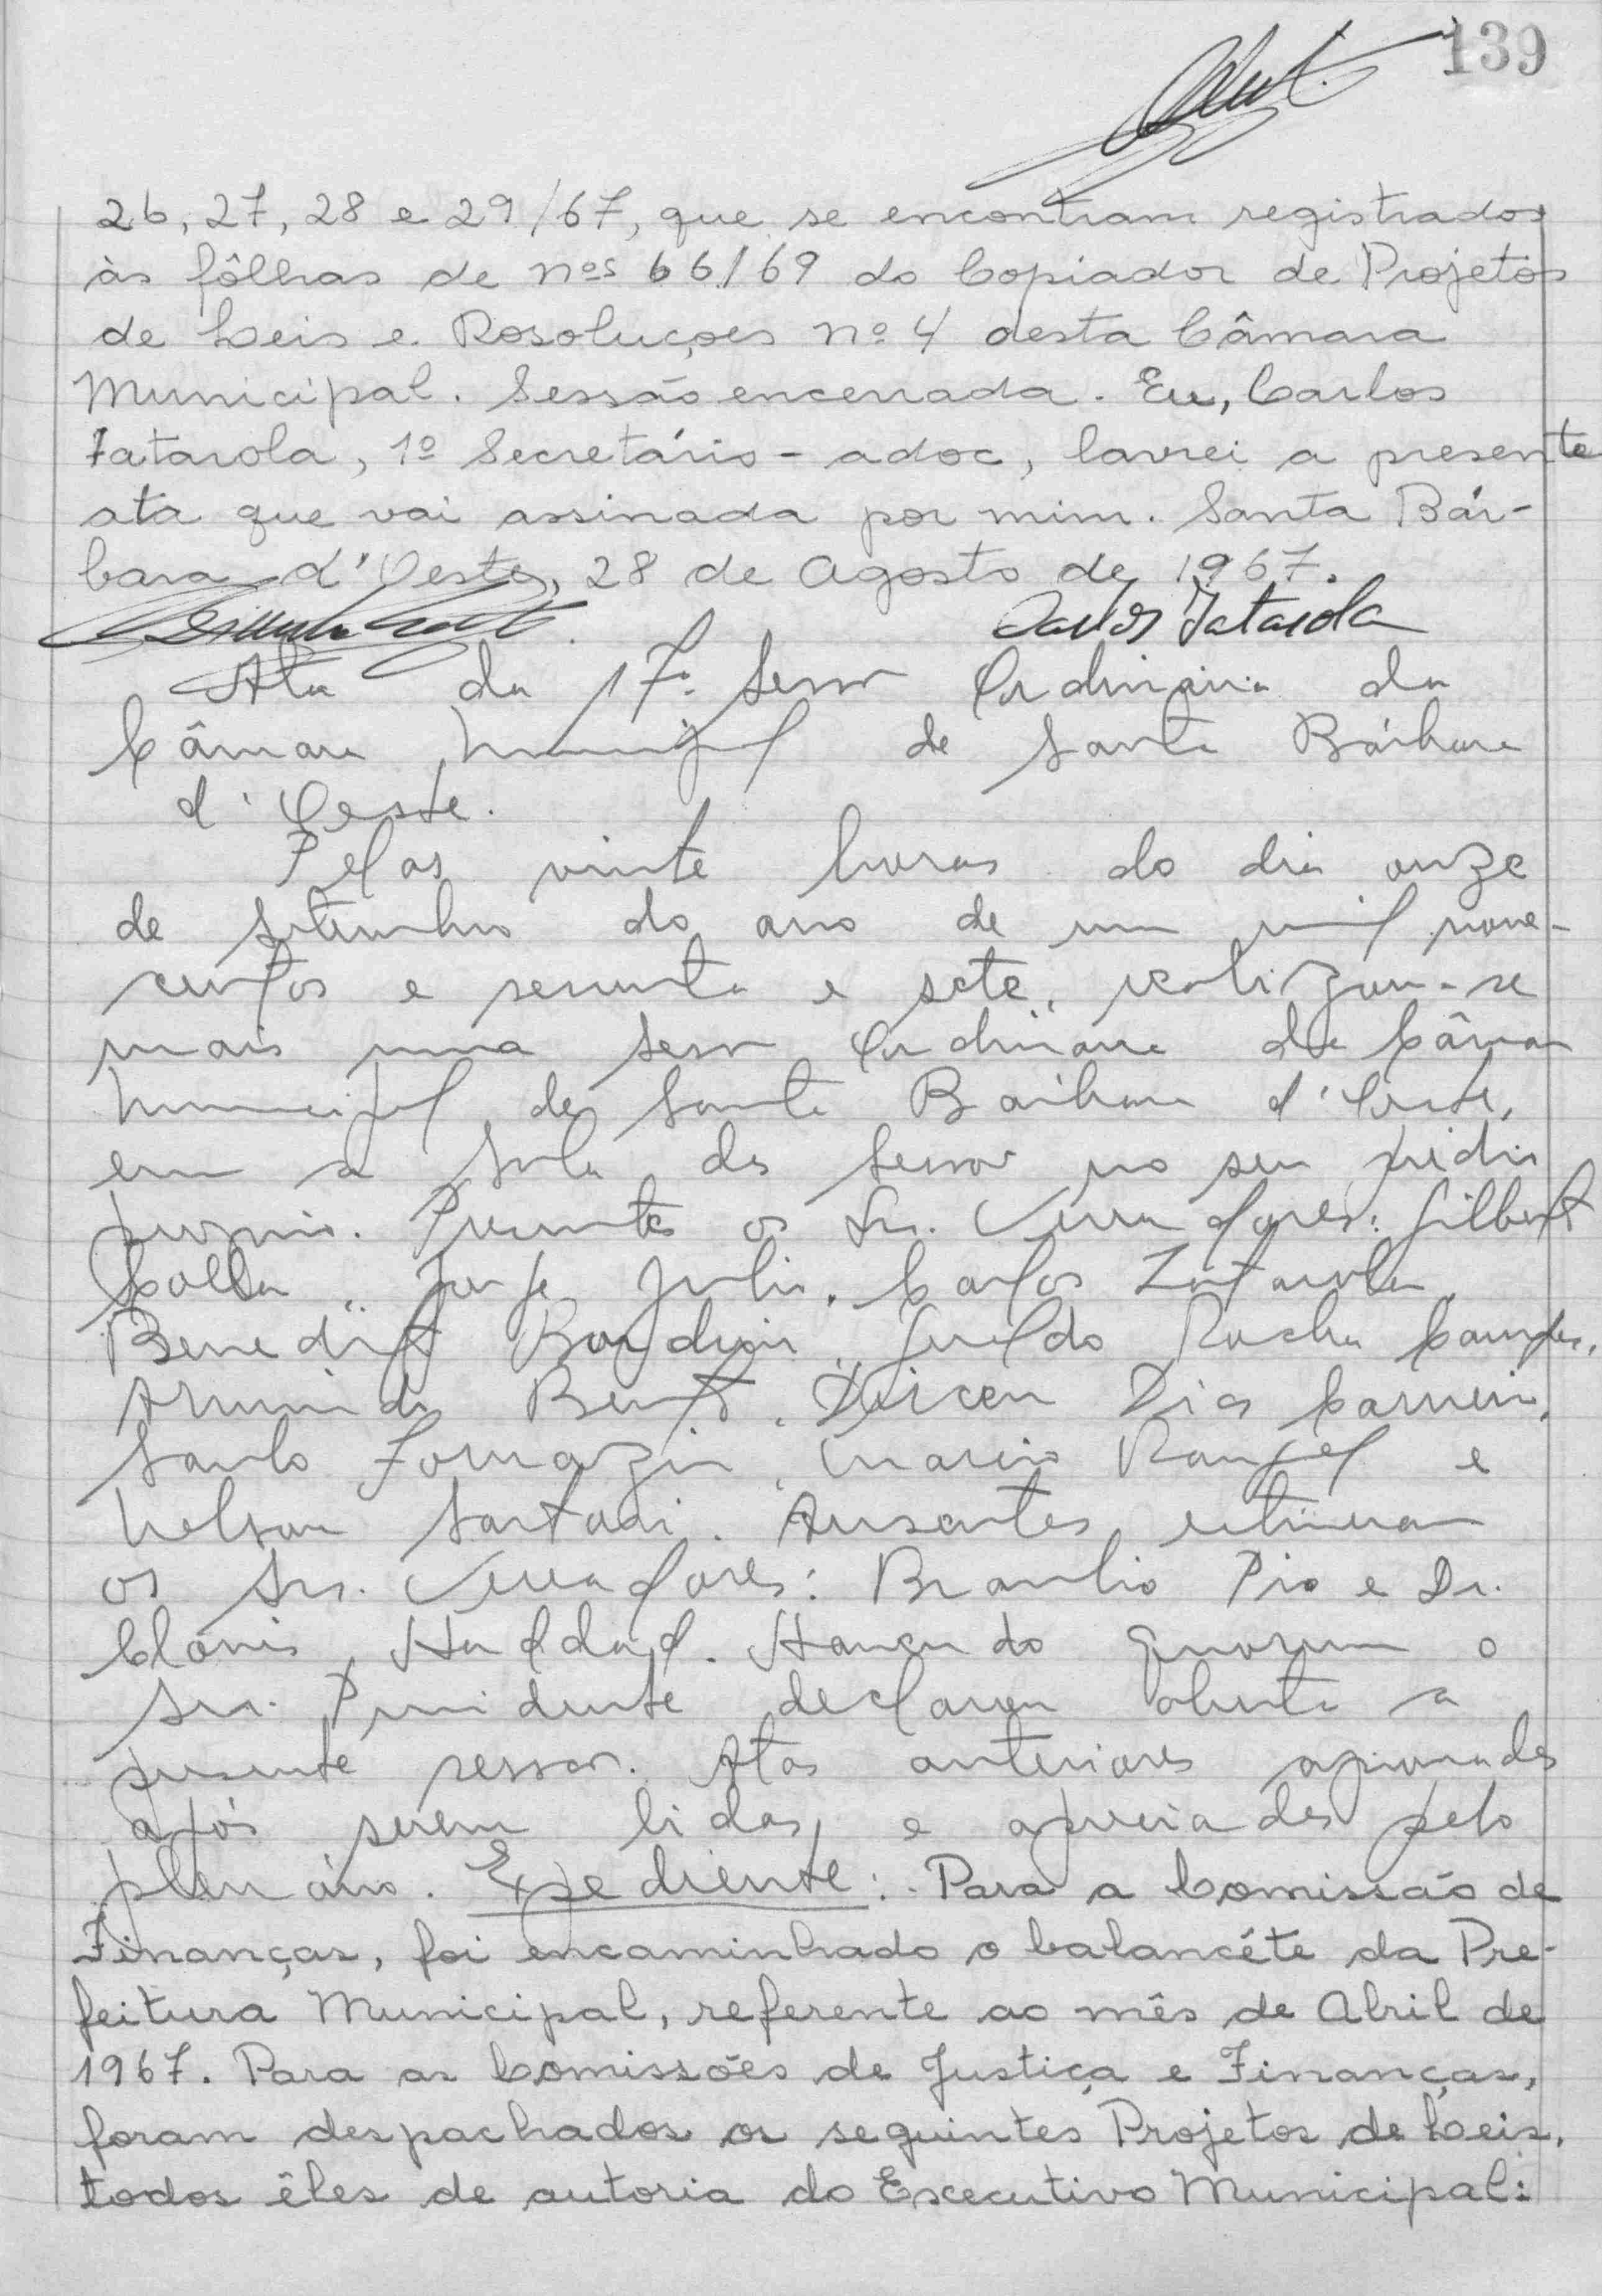 139
26, 27, 28 e 29/67, que se encontram registrados
às fôlhas de nºs 66/69 do Copiador de Projetos
de Leis e Rosoluçoes nº 4 desta Câmara
Municipal. Sessão encerrada. Eu, Carlos
Fatarola, 1º Secretário - adoc, lavrei a presente
ata que vai assinada por mim. Santa Bár-
bara d'Oeste, 28 de Agosto de 1967.
Carlos Fatarola
Ata da 17ª Sessão Ordinária da
Câmara Municipal de Santa Bárbara
d'Oeste.
Pelas vinte horas do dia onze
de setembro do ano de um mil nove-
centos e sessenta e sete, realizou-se
mais uma sessão Ordinária da Câmara
Municipal de Santa Bárbara d'Oeste,
em a sala das sessões no seu prédio
proprio. Presentes os Srs. Vereadores: Gilberto
Colla, Jorge Julio, Carlos Zatarola,
Benedito Bordini, Geraldo Rocha Campos,
Arminda Bento, Dirceu Dias Carneiro,
Santo Fornazin, Mario Rangel e
Nelson Sartori. Ausentes estiveram
os Srs. Vereadores: Braulio Pio e Dr.
Clovis Haddad. Havendo quorum o
Snr. Presidente declarou aberta a
presente sessão. Atas anteriores aprovadas
após serem lidas e apreciadas pelo
plenário. Expediente: Para a Comissão de
Finanças, foi encaminhado o balancéte da Pre-
feitura Municipal, referente ao mês de Abril de
1967. Para as Comissões de Justiça e Finanças,
foram despachados os seguintes Projetos de Leis,
todos êles de autoria do Executivo Municipal: